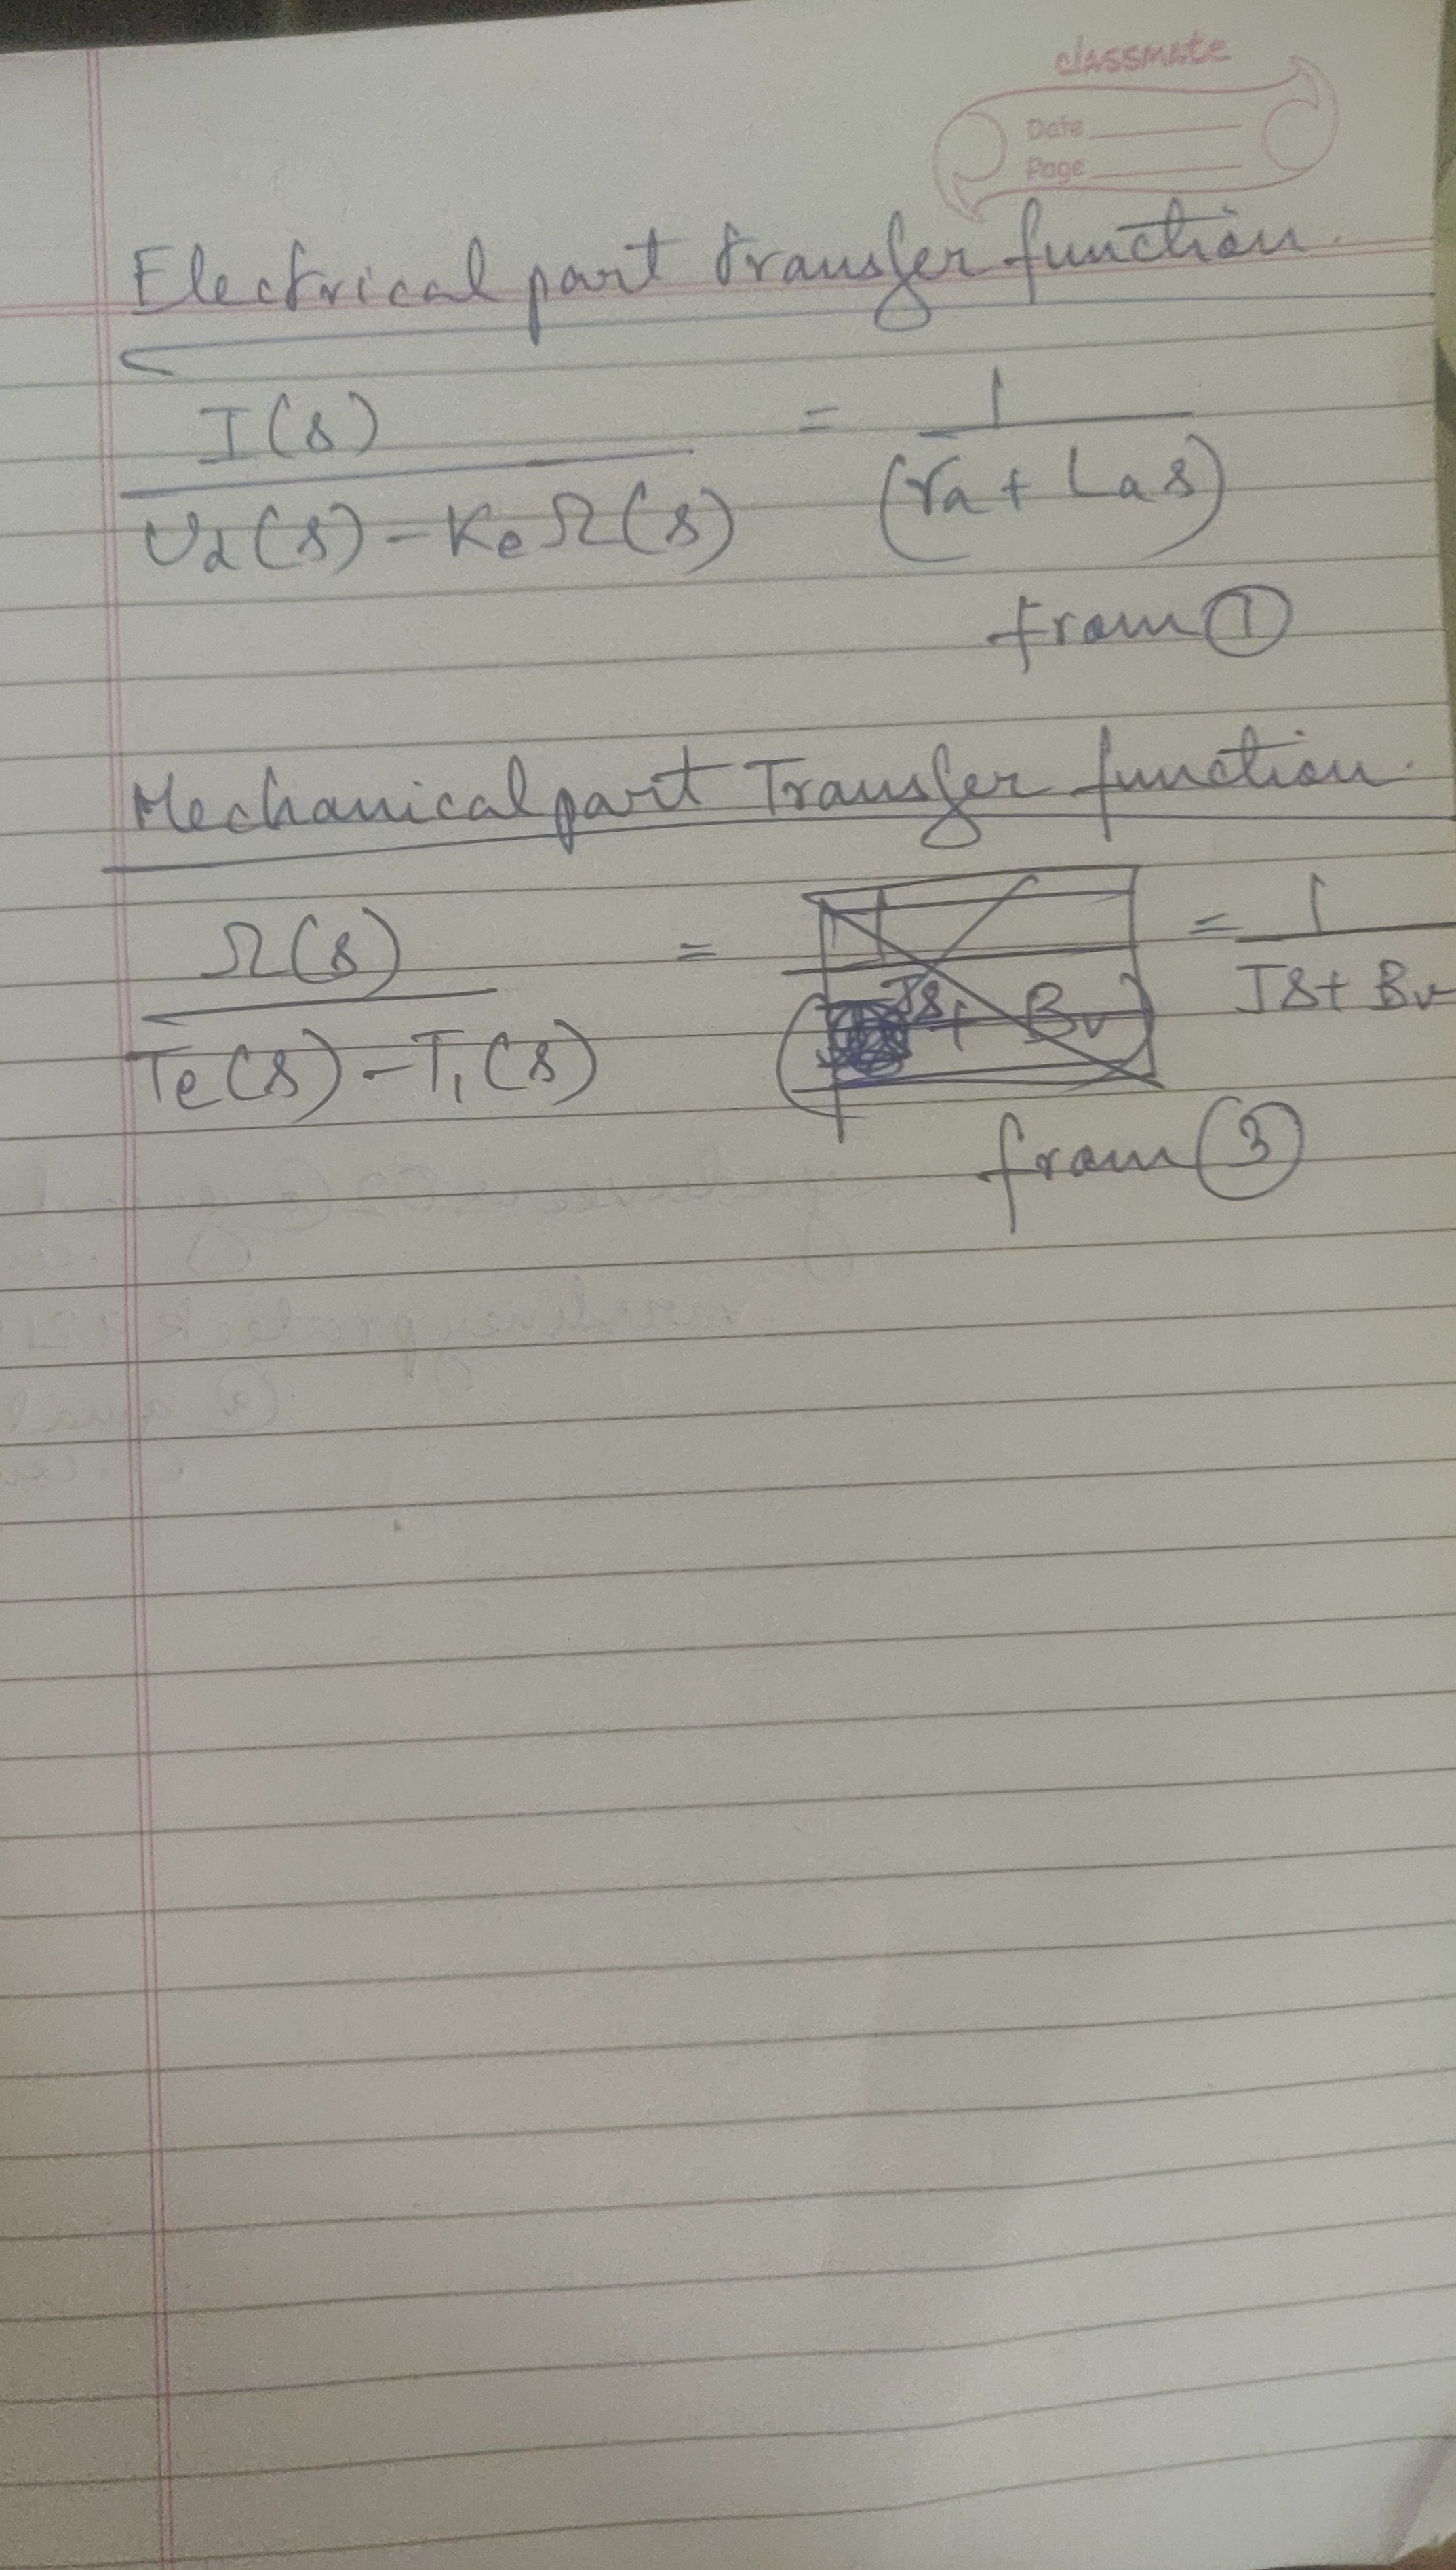 classmate
Date
Page
Electrical part transfer function.
I(s) / Ud(s) - Ke Ω(s) = 1 / (ra + Las)
from ①
Mechanical part Transfer function.
Ω(s) / Te(s) - T1(s) = Js + Bv = 1 / Js + Bv
from ③